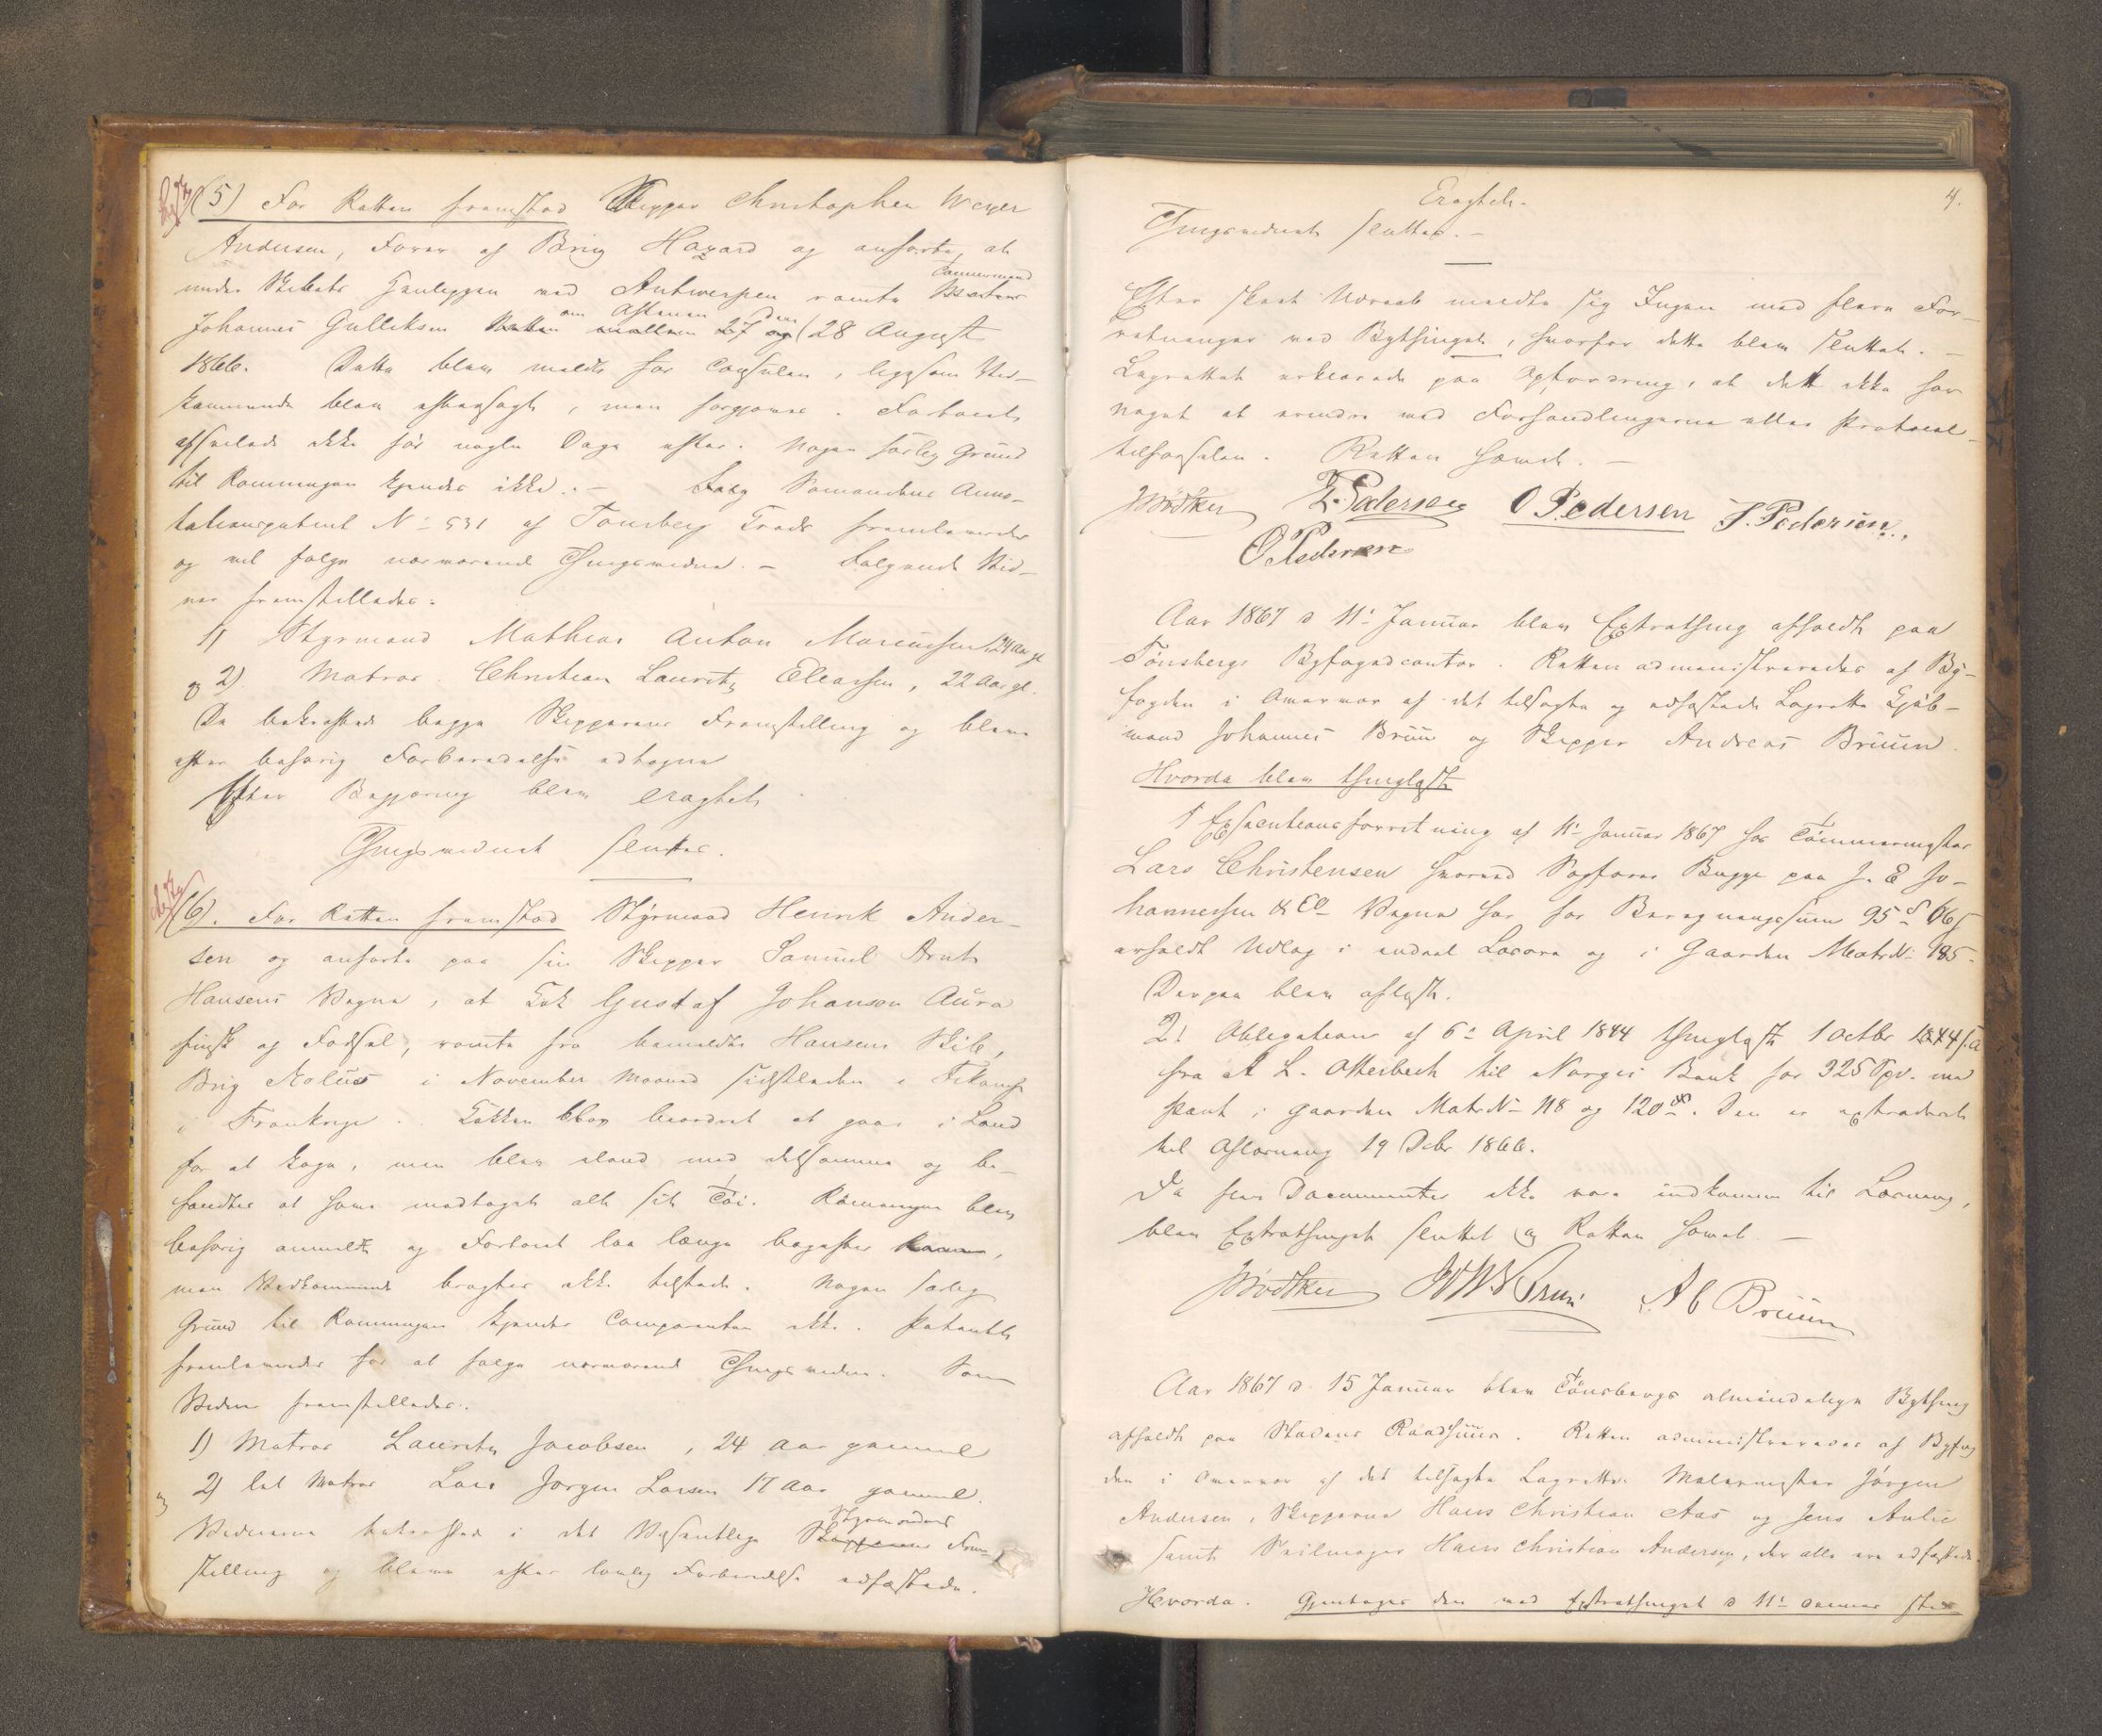 (5) For Retten fremstod Skipper Christopher Weyer
Andersen, Fører af Brig Hazard og anførte, at
under Skibets Henliggen ved Antwerpen rømte Tømmermand
Johannes Gulliksen om Aftenen den 28 August
1866. Dette blev meldt for Consulen, ligesom Ved-
kommende blev eftersøgt, men forgjæves. Fartøiet
afseilede ikke før nogle Dage efter. Nogen særlig Grund
til Rømningen kjendes ikke. – Følg Sømandens Anno-
tationspatent No 531 af Tønsberg Trads fremlagdes
og vil følge nærværende Thingsvidne. – Følgende Vid-
ner fremstilledes:
1) Styrmand Mathias Anton Marcussen, 24 Aar gl
og 2) Matros Christian Lauritz Eliassen, 22 Aar gl.
De bekræftede begge Skipperens Fremstilling og bleve
efter behørig Forberedelse edtagne
Efter Begjæring blev eragtet
Thingsvidnet sluttes.
(6). For Retten fremstod Styrmand Henrik Ander-
sen og anførte paa sin Skipper Samuel Arnt
Hansens Vegne, at Kok Gustaf Johanson Aura
finsk af Fødsel, rømte fra bemeldte Hansens Skib,
Brig Æolus i November Maaned sidstleden i Fécamp
i Frankrige. Kokken blev beordret at gaae i Land
for at koge, men blev iland med detsamme og be-
fandtes at have medtaget alt sit Tøi. Rømningen blev
behørig anmeldt og Fartøiet laa længe bagefter,
men Vedkommende bragtes ikke tilstede. Nogen særlig
Grund til Rømningen kjender Comparenten ikke. Patentet
fremlagdes for at følge nærværende Thingsvidne. Som
Vidner fremstilledes:
1) Matros Lauritz Jacobsen, 24 Aar gammel
og 2) let Matros Lars Jørgen Larsen 17 Aar gammel.
Vidnerne bekræftede i det Væsentlige Styrmandens Frem-
stilling og bleve efter lovlig Forberedelse edfæstede.
4.
Eragtet.
Thingsvidnet sluttes. –
Efter skeet Udraab meldte sig Ingen med flere For-
retninger ved Bythinget, hvorfor dette blev sluttet. –
Lagrettet erklærede paa Opfordring, at det ikke har
noget at erindre ved Forhandlingerne eller Protocol-
tilførselen. Retten hævet. –
J Bødtker Z. Pedersen O Pedersen S. Pedersen.
O Pedersen
Aar 1867 d 11te Januar blev Extrathing afholdt paa
Tønsbergs Byfogedcontor. Retten administreredes af By-
fogden i Overvær af det tilsagte og edfæstede Lagrette Kjøb-
mand Johannes Bruu og Skipper Andreas Bruun.
Hvorda blev thinglæst
1 Executionsforretning af 11te Januar 1867 hos Tømmermester
Lars Christensen hvorved Sagfører Bugge paa J. E Jo-
hannessen & Co Vegne har for Beregningssum 95 S 66 s
erholdt Udlæg i endeel Løsøre og i Gaarden Matr No 185.
Derpaa blev aflyst.
2) Obligation af 6te April 1844 thinglæst 1 Octbr 1844 s.A
fra A L. Otterbech til Norges Bank for 325 Spd. med
Pant i Gaarden Matr No 118 og 120. Den er extraderet
til Aflæsning 19 Decbr 1866.
Da flere Documenter ikke vare indkomne til Læsning,
blev Extrathinget sluttet og Retten hævet. –
J Bødtker A C Bruun
Aar 1867 d. 15 Januar blev Tønsbergs almindelige Bything
afholdt paa Stadens Raadhuus. Retten administreredes af Byfog
den i Overvær af det tilsagte Lagrette: Malermester Jørgen
Andersen, Skipperne Hans Christian Aas og Jens Aulie
samt Seilmager Hans Christian Andersen, der alle ere edfæstede.
Hvorda. Gjentoges den ved Extrathinget d 11te Januar skee